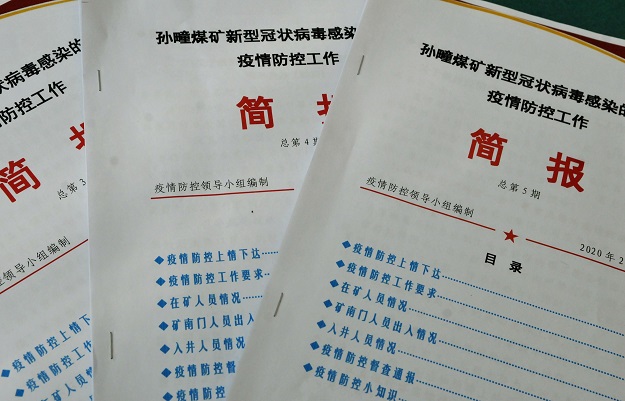 状病毒感染的
情防控工作
简
总第3
领导小组编制
疫情防控上情下
疫情防控工作
在矿人员情
孙疃煤矿新型冠状病毒感染
疫情防控工作
简报
总第4期
疫情防控领导小组编制
◆疫情防控上情下达
◆疫情防控工作要求
◆在矿人员情况
◆矿南门人员出入
◆入井人员情况
◆疫情防控督
◆疫情防控
孙疃煤矿新型冠状病毒感染的
疫情防控工作
简报
总第5期
疫情防控领导小组编制
2020年2
目录
◆疫情防控上情下达
◆疫情防控工作要求
◆在矿人员情况
◆矿南门人员出入情况
◆入井人员情况
◆疫情防控督查通报
◆疫情防控小知识